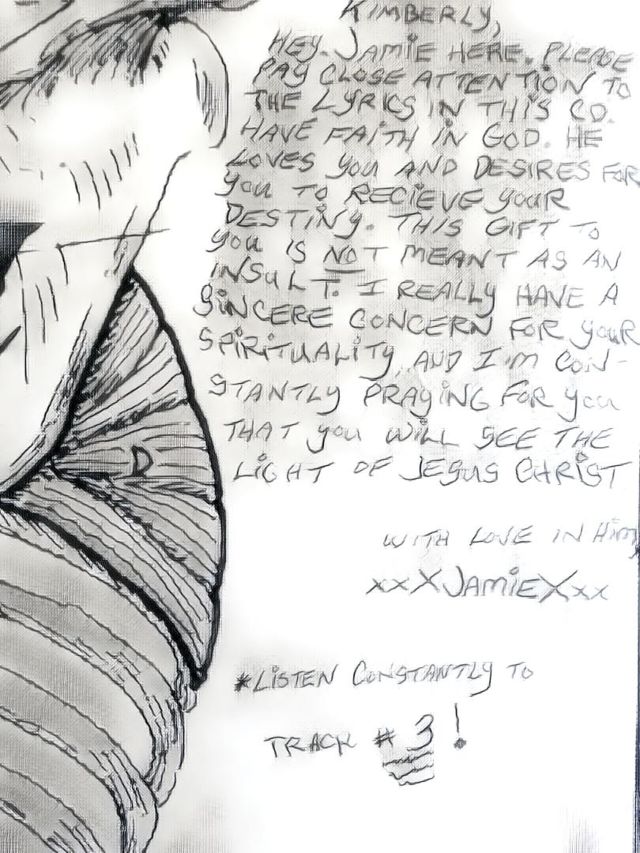 KIMBERLY,
HEY. JAMIE HERE. PLEASE
PAY CLOSE ATTENTION TO
THE LYRICS IN THIS CD.
HAVE FAITH IN GOD. HE
LOVES YOU AND DESIRES FOR
YOU TO RECIEVE YOUR
DESTINY. THIS GIFT TO
YOU IS NOT MEANT AS AN
INSULT. I REALLY HAVE A
SINCERE CONCERN FOR YOUR
SPIRITUALITY, AND I'M CON-
STANTLY PRAYING FOR YOU
THAT YOU WILL SEE THE
LIGHT OF JESUS CHRIST
WITH LOVE IN HIM,
xxXJAMIEXxx
*LISTEN CONSTANTLY TO
TRACK # 3!